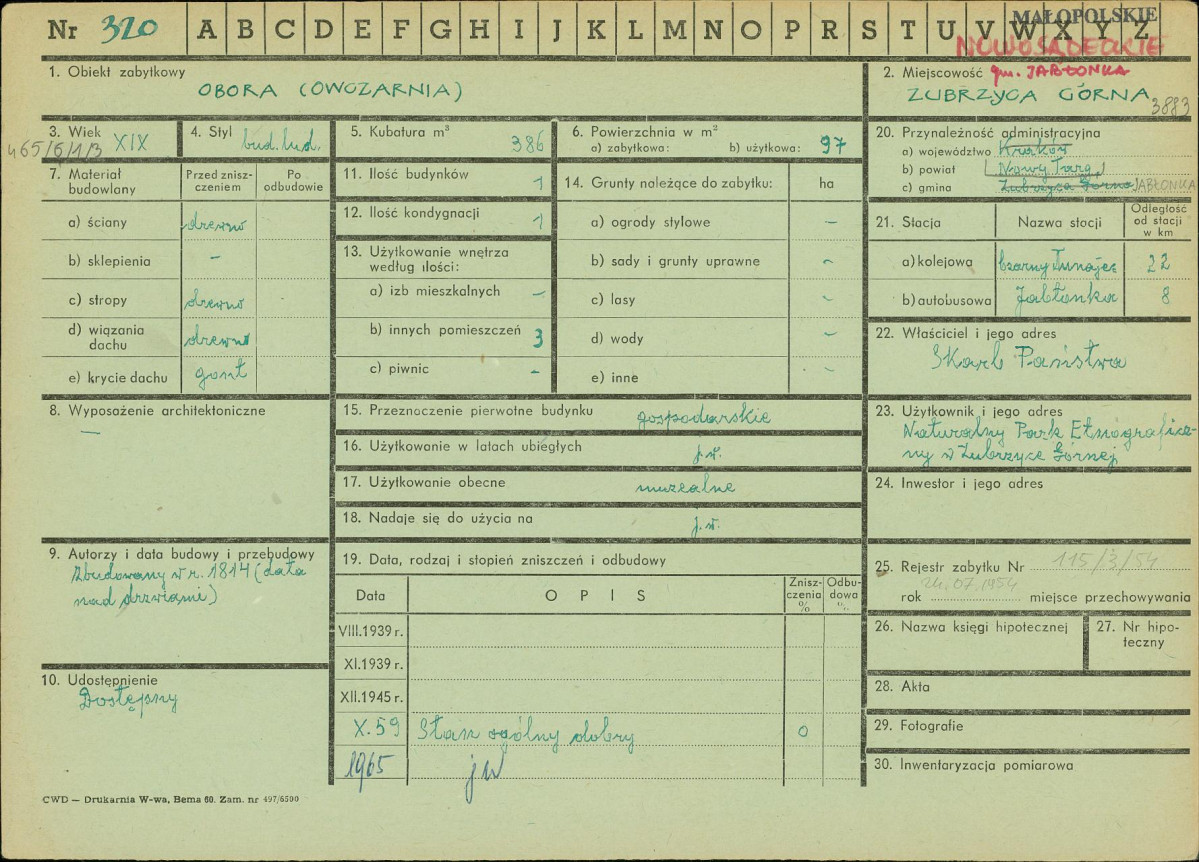 Nr 320 A B C D E F G H I J K L M N O P R S T U V W X Y Z
MAŁOPOLSKIE
NOWOSĄDECKIE
1. Obiekt zabytkowy
OBORA (OWCZARNIA)
2. Miejscowość gm. JABŁONKA
ZUBRZYCA GÓRNA 3883
3. Wiek XIX
4. Styl bud. lud.
5. Kubatura m³
386
6. Powierzchnia w m²
a) zabytkowa: b) użytkowa: 97
7. Materiał budowlany
Przed zniszczeniem
Po odbudowie
a) ściany drewno
b) sklepienia –
c) stropy drewno
d) wiązania dachu drewno
e) krycie dachu gont
8. Wyposażenie architektoniczne
—
9. Autorzy i data budowy i przebudowy
Zbudowany w r. 1814 (data
nad drzwiami)
10. Udostępnienie
Dostępny
11. Ilość budynków 1
12. Ilość kondygnacji 1
13. Użytkowanie wnętrza
według ilości:
a) izb mieszkalnych –
b) innych pomieszczeń 3
c) piwnic –
14. Grunty należące do zabytku: ha
a) ogrody stylowe –
b) sady i grunty uprawne –
c) lasy –
d) wody –
e) inne
15. Przeznaczenie pierwotne budynku gospodarskie
16. Użytkowanie w latach ubiegłych j.w.
17. Użytkowanie obecne muzealne
18. Nadaje się do użycia na j.w.
19. Data, rodzaj i stopień zniszczeń i odbudowy
Data OPIS Zniszczenia % Odbudowa %
VIII.1939 r.
XI.1939 r.
XII.1945 r.
X.59 Stan ogólny dobry 0
1965 jw
20. Przynależność administracyjna
a) województwo Kraków
b) powiat Nowy Targ
c) gmina Zubrzyca Górna JABŁONKA
21. Stacja Nazwa stacji Odległość od stacji w km
a) kolejowa Czarny Dunajec 22
b) autobusowa Jabłonka 8
22. Właściciel i jego adres
Skarb Państwa
23. Użytkownik i jego adres
Naturalny Park Etnograficz-
ny w Zubrzyce Górnej
24. Inwestor i jego adres
25. Rejestr zabytku Nr 115/3/54
24.07.1954
rok miejsce przechowywania
26. Nazwa księgi hipotecznej
27. Nr hipoteczny
28. Akta
29. Fotografie
30. Inwentaryzacja pomiarowa
CWD — Drukarnia W-wa, Bema 60. Zam. nr 497/6500